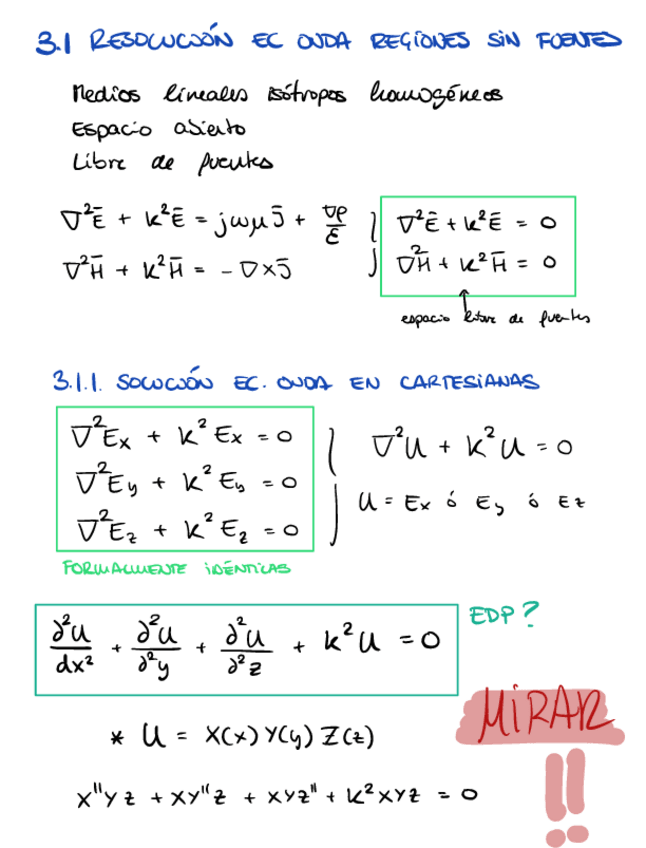 3.1 RESOLUCIÓN EC ONDA REGIONES SIN FUENTES
Medios lineales isótropos homogéneos
Espacio abierto
Libre de fuentes
∇²Ē + k²Ē = jωμJ̄ + ∇ρ/ε
∇²Ē + k²Ē = 0
∇²H̄ + k²H̄ = -∇×J̄
∇²H̄ + k²H̄ = 0
espacio libre de fuentes
3.1.1. SOLUCIÓN EC. ONDA EN CARTESIANAS
∇²Ex + k²Ex = 0
∇²Ey + k²Ey = 0
∇²Ez + k²Ez = 0
∇²U + k²U = 0
U = Ex ó Ey ó Ez
FORMALMENTE IDÉNTICAS
∂²U/dx² + ∂²U/∂²y + ∂²U/∂²z + k²U = 0
EDP?
MIRAR
!!
* U = X(x) Y(y) Z(z)
X''YZ + XY''Z + XYZ'' + k²XYZ = 0